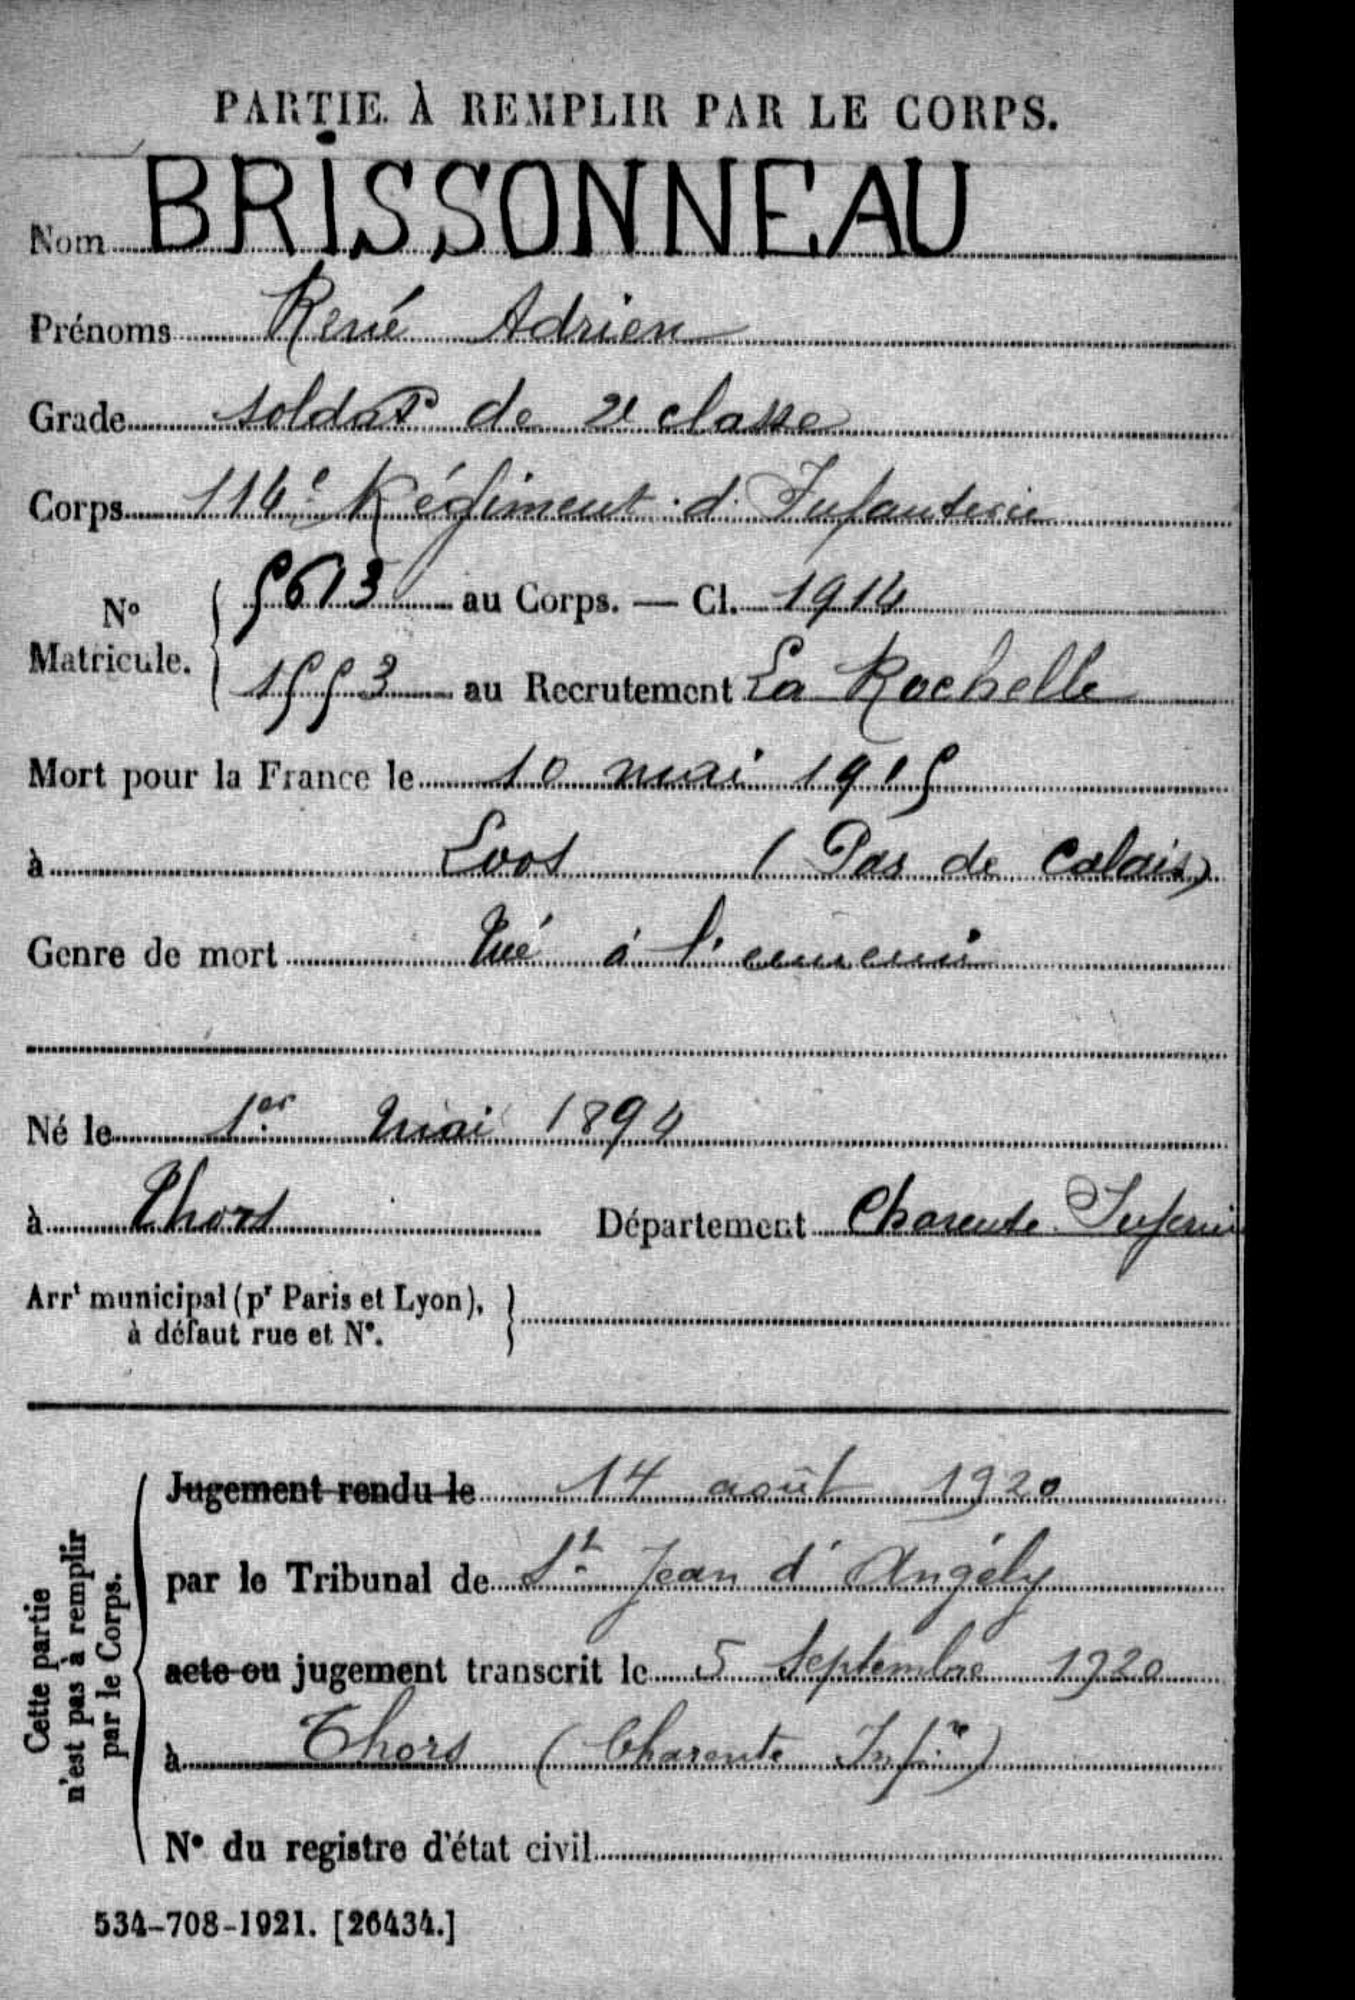 PARTIE À REMPLIR PAR LE CORPS.
Nom BRISSONNEAU
Prénoms René Adrien
Grade soldat de 2e classe
Corps 114e Régiment d'Infanterie
N° Matricule. { 5613 au Corps. — Cl. 1914
1553 au Recrutement La Rochelle
Mort pour la France le 10 mai 1915
à Loos (Pas de Calais)
Genre de mort Tué à l'ennemi
Né le 1er Mai 1894
à Thors Département Charente Inférie
Arrt municipal (pr Paris et Lyon),
à défaut rue et N°.
Cette partie
n'est pas à remplir
par le Corps.
Jugement rendu le 14 août 1920
par le Tribunal de St Jean d'Angély
acte ou jugement transcrit le 5 Septembre 1920
à Thors (Charente Infre)
N° du registre d'état civil
534-708-1921. [26434.]